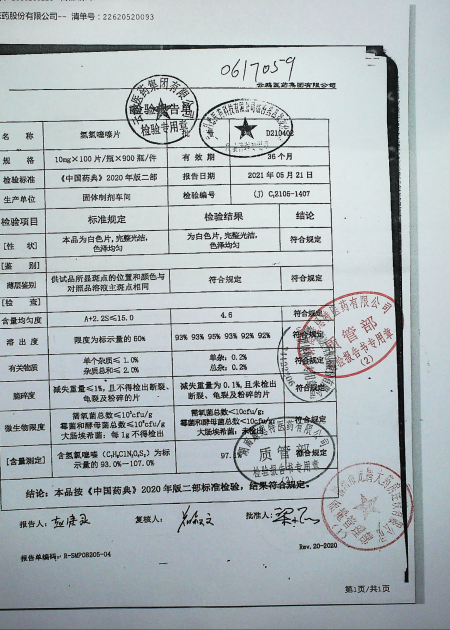 医药股份有限公司-- 清单号：22620520093
0617059
云鹏医药集团有限公司
检验报告单
检验专用章
名 称 氢氯噻嗪片 D210402
规 格 10mg×100片/瓶×900瓶/件 有效期 36个月
检验标准 《中国药典》2020年版二部 报告日期 2021年05月21日
生产单位 固体制剂车间 检验编号 (J) C2105-1407
检验项目 标准规定 检验结果 结论
[性 状] 本品为白色片，完整光洁，色泽均匀 为白色片，完整光洁，色泽均匀 符合规定
[鉴 别]
薄层鉴别 供试品所显斑点的位置和颜色与对照品溶液主斑点相同 符合规定 符合规定
[检 查]
含量均匀度 A+2.2S≤15.0 4.6 符合规定
溶出度 限度为标示量的60% 93% 93% 95% 93% 92% 92% 符合规定
有关物质 单个杂质≤1.0% 单杂：0.2% 符合规定
杂质总和≤2.0% 总杂：0.2%
脆碎度 减失重量≤1%，且不得检出断裂、龟裂及粉碎的片 减失重量为0.1%，且未检出断裂、龟裂及粉碎的片
微生物限度 需氧菌总数≤10³cfu/g 需氧菌总数<10cfu/g；
霉菌和酵母菌总数≤10²cfu/g 霉菌和酵母菌总数<10cfu/g；
大肠埃希菌：每1g不得检出 大肠埃希菌：未检出
[含量测定] 含氢氯噻嗪 为标示量的93.0%—107.0% 97. 符合规定
质管部
检验报告书专用章
(2)
质管部
检验报告书专用章
(2)
结论：本品按《中国药典》2020年版二部标准检验，结果符合规定。
报告人： 复核人： 批准人：
报告单编码：R-SMP08205-04 Rev.20-2020
第1页/共1页